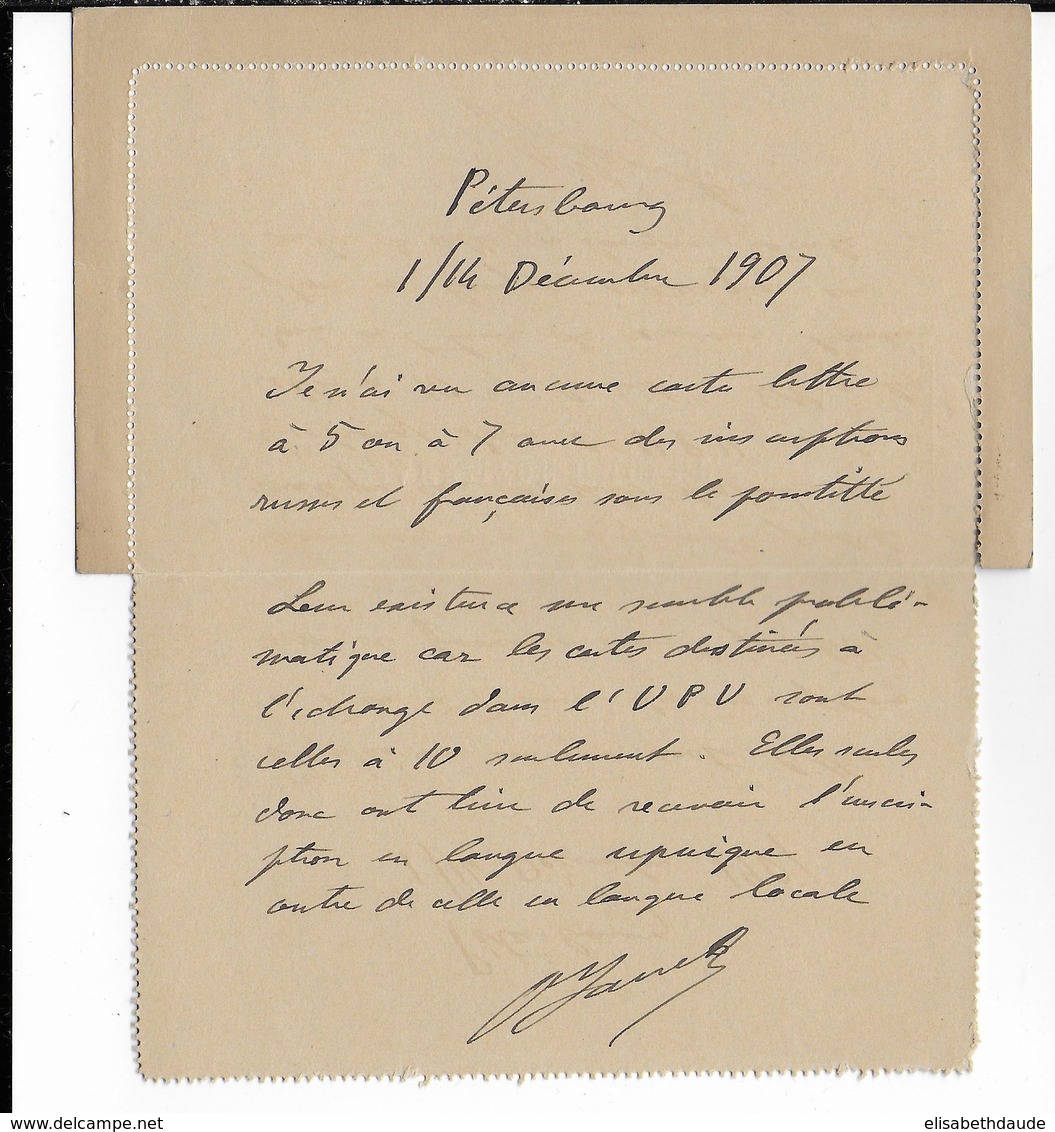 Pétersbourg
1/14 Décembre 1907
Je n'ai vu aucune carte lettre
à 5 ou à 7 avec des inscriptions
russes et françaises sous le pointillé
Leur existence me semble problé-
matique car les cartes destinées à
l'échange dans l'UPU sont
celles à 10 seulement. Elles seules
donc ont lieu de recevoir l'inscri-
ption en langue upuique en
outre de celle en langue locale
delcampe.net
elisabethdaude